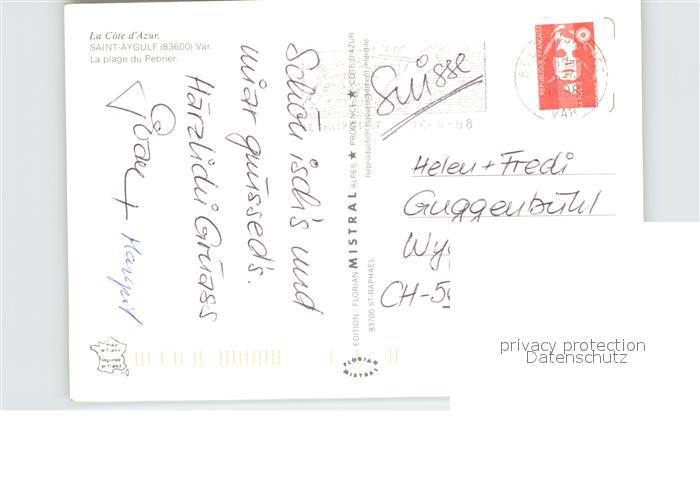 La Côte d'Azur.
SAINT-AYGULF (83600) Var.
La plage du Pébrier.
Schön isch's und
miar gnüssed's.
Härzlichi Grüass
+ Margrit
EDITION FLORIAN MISTRAL ALPES ★ PROVENCE ★ CÔTE D'AZUR
83700 ST-RAPHAEL
Reproduction rigoureusement interdite
Suisse
16-4-98
83
VAR
REPUBLIQUE FRANÇAISE
LA POSTE
Helen + Fredi
Guggenbühl
CH-5
FLORIAN
MISTRAL
privacy protection
Datenschutz